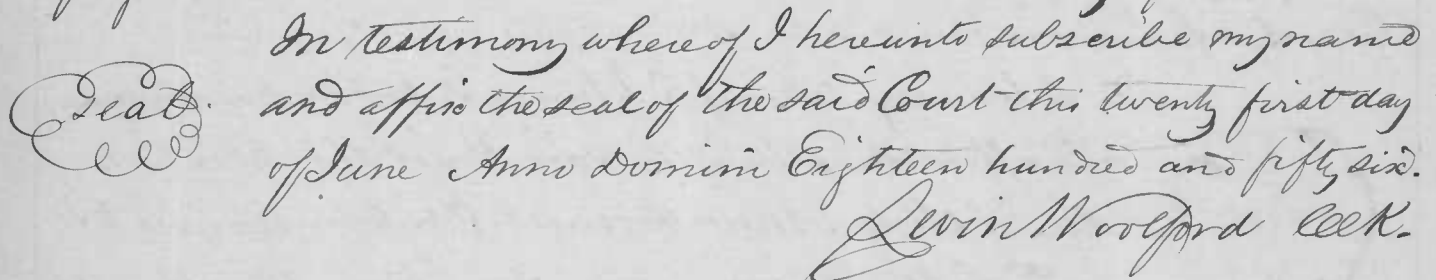 In testimony whereof I hereunto subscribe my name
Seal. and affix the seal of the said Court this twenty first day
of June Anno Domini Eighteen hundred and fifty six.
Levin Woolford Clk.